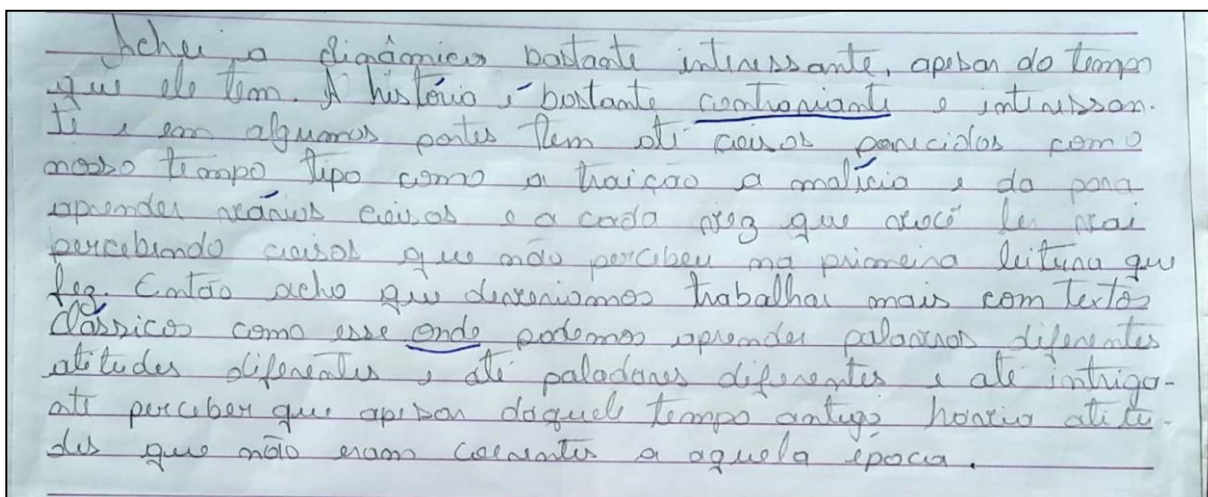 Achei a dinâmica bastante interessante, apesar do tempo
que ele tem. A história é bastante contrariante e interessan-
te e em algumas partes tem até coisas parecidas com o
nosso tempo tipo como a traição a malícia e da para
aprender várias coisas e a cada vez que você ler vai
percebendo coisas que não percebeu na primeira leitura que
fez. Então acho que deveriamos trabalhar mais com textos
clássicos como esse onde podemos aprender palavras diferentes
atitudes diferentes e até paladares diferentes e até intriga-
ate perceber que apesar daquele tempo antigo havia atitu-
des que não eram coerentes a aquela época.